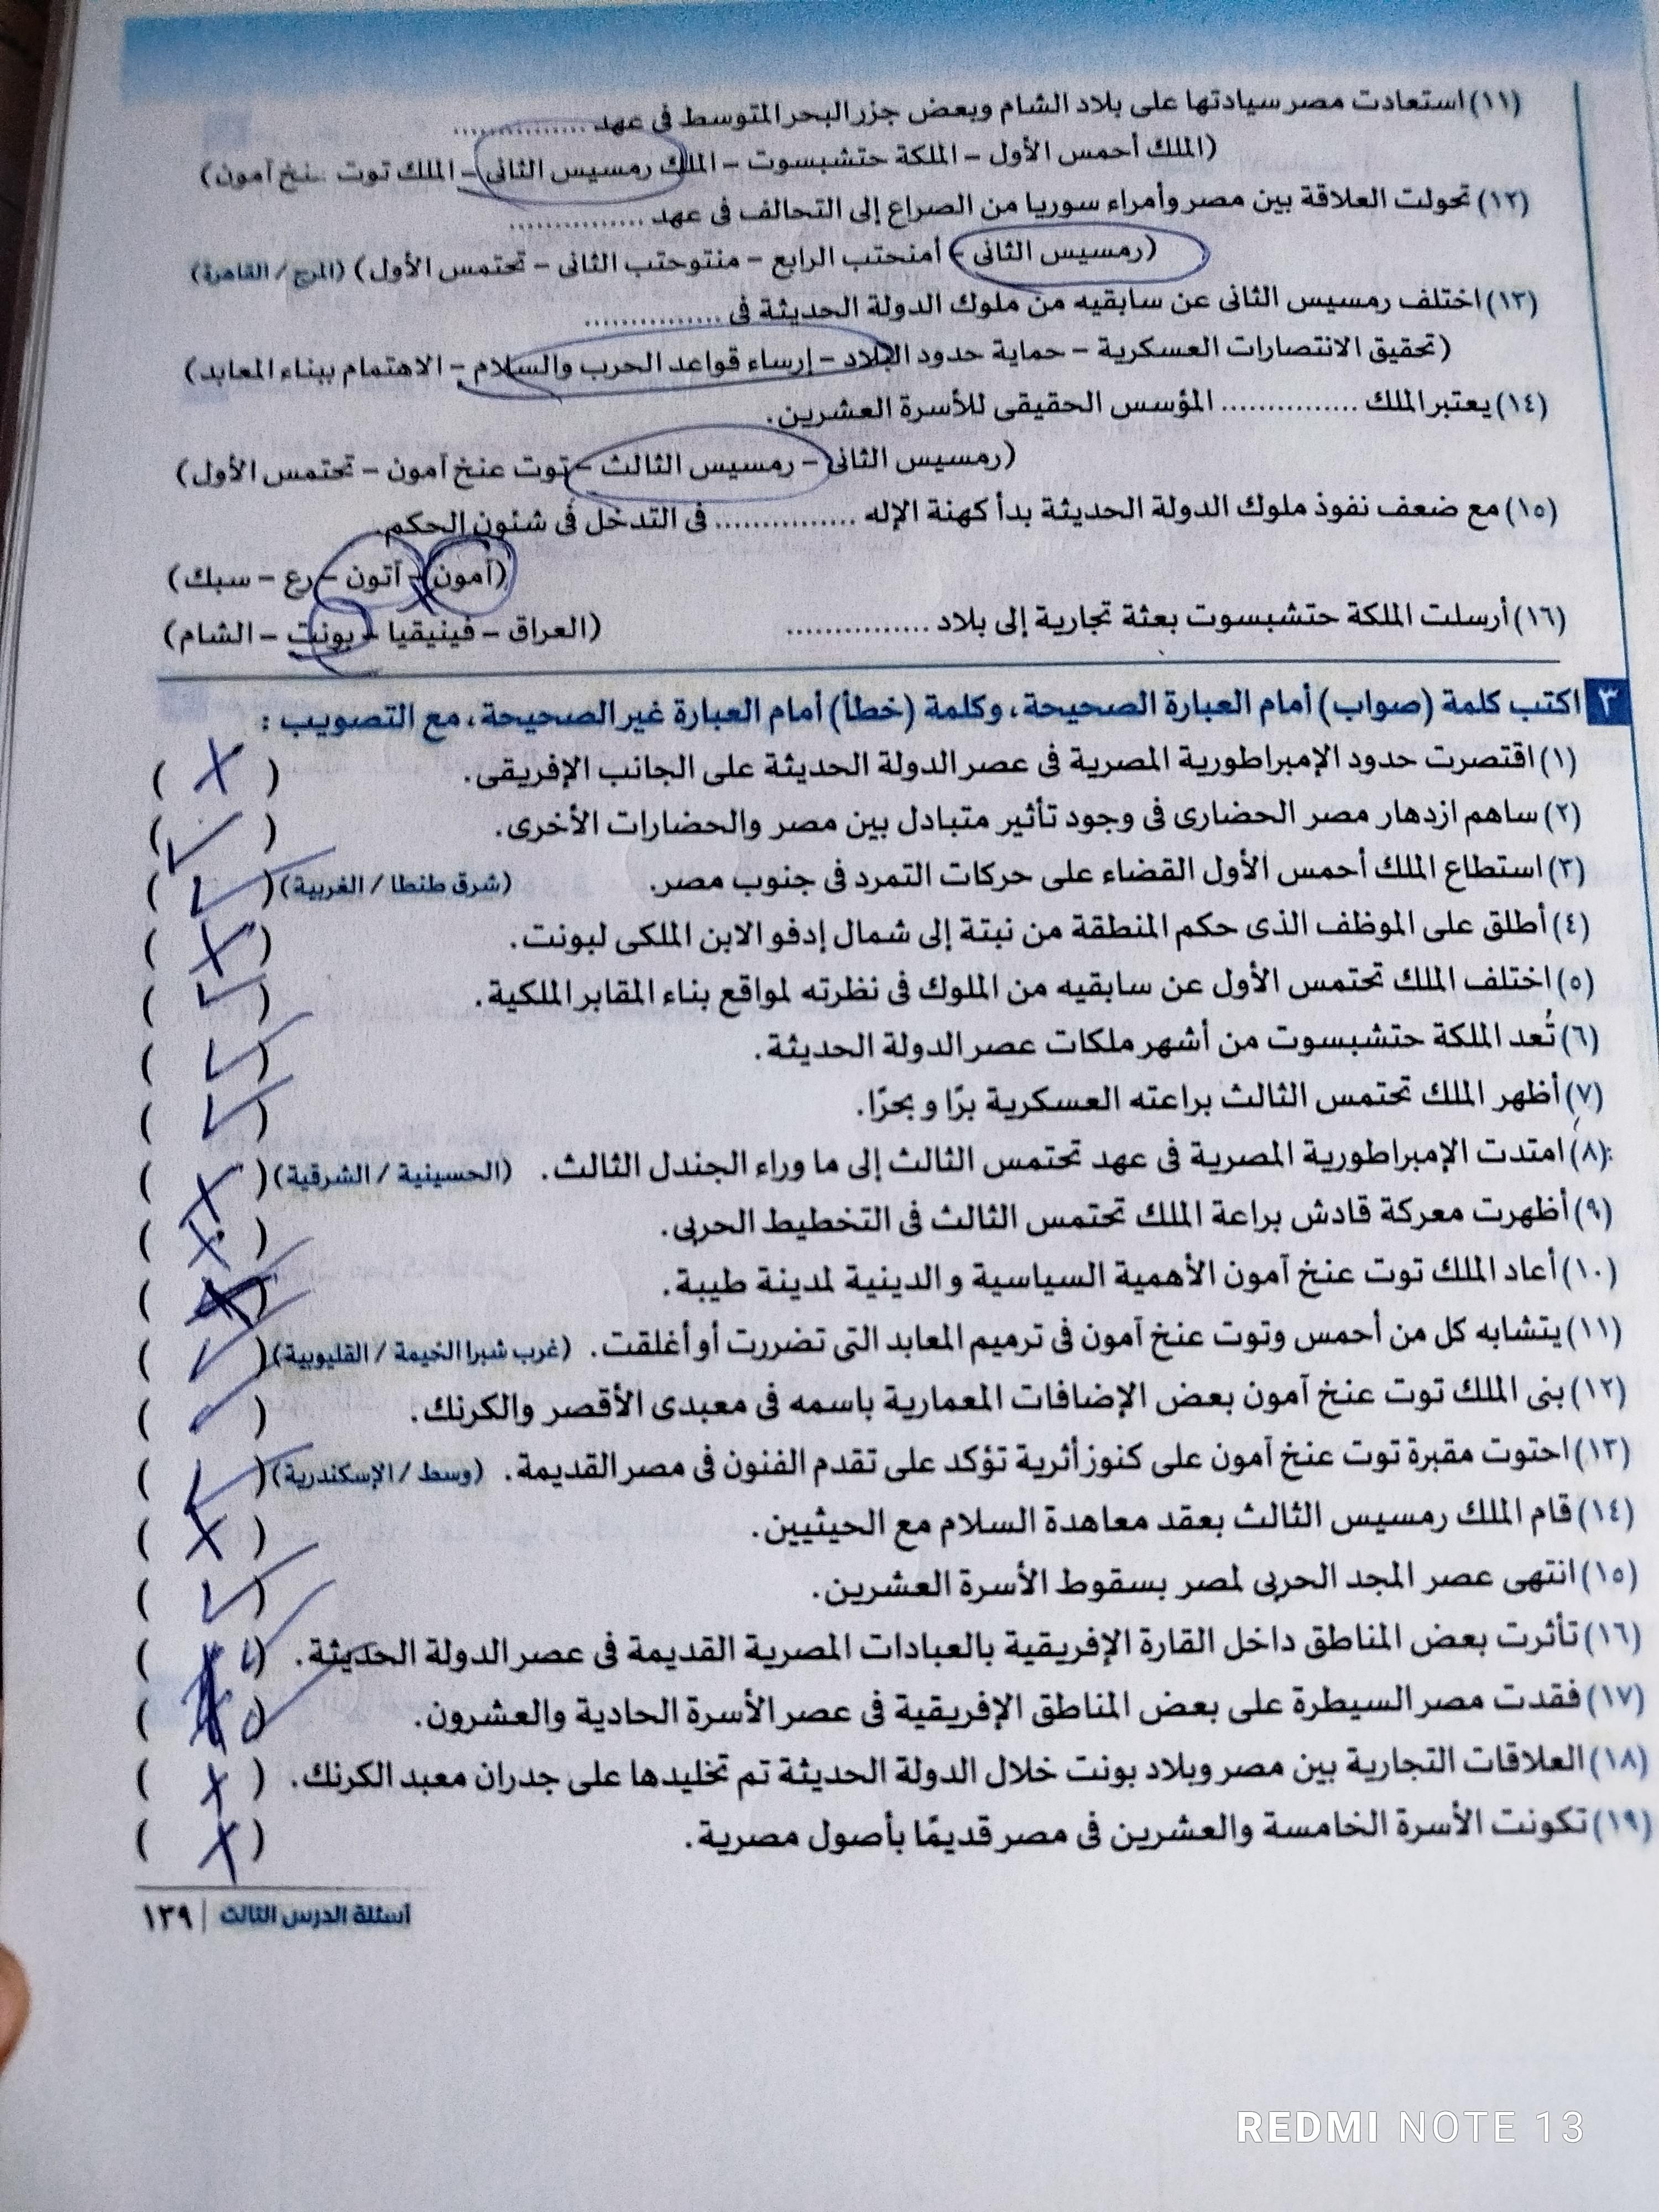 (١١) استعادت مصر سيادتها على بلاد الشام وبعض جزر البحر المتوسط فى عهد ...............
(الملك أحمس الأول - الملكة حتشبسوت - الملك رمسيس الثانى - الملك توت عنخ آمون)
(١٢) تحولت العلاقة بين مصر وأمراء سوريا من الصراع إلى التحالف فى عهد ...............
(رمسيس الثانى - أمنحتب الرابع - منتوحتب الثانى - تحتمس الأول) (المرج / القاهرة)
(١٣) اختلف رمسيس الثانى عن سابقيه من ملوك الدولة الحديثة فى ...............
(تحقيق الانتصارات العسكرية - حماية حدود البلاد - إرساء قواعد الحرب والسلام - الاهتمام ببناء المعابد)
(١٤) يعتبر الملك ............... المؤسس الحقيقى للأسرة العشرين.
(رمسيس الثانى - رمسيس الثالث - توت عنخ آمون - تحتمس الأول)
(١٥) مع ضعف نفوذ ملوك الدولة الحديثة بدأ كهنة الإله ............... فى التدخل فى شئون الحكم.
(آمون - آتون - رع - سبك)
(١٦) أرسلت الملكة حتشبسوت بعثة تجارية إلى بلاد ............... (العراق - فينيقيا - بونت - الشام)
٣ اكتب كلمة (صواب) أمام العبارة الصحيحة، وكلمة (خطأ) أمام العبارة غير الصحيحة، مع التصويب :
(١) اقتصرت حدود الإمبراطورية المصرية فى عصر الدولة الحديثة على الجانب الإفريقى. ( ✗ )
(٢) ساهم ازدهار مصر الحضارى فى وجود تأثير متبادل بين مصر والحضارات الأخرى. ( ✓ )
(٣) استطاع الملك أحمس الأول القضاء على حركات التمرد فى جنوب مصر. (شرق طنطا / الغربية) ( ✓ )
(٤) أطلق على الموظف الذى حكم المنطقة من نبتة إلى شمال إدفو الابن الملكى لبونت. ( ✗ )
(٥) اختلف الملك تحتمس الأول عن سابقيه من الملوك فى نظرته لمواقع بناء المقابر الملكية. ( ✓ )
(٦) تُعد الملكة حتشبسوت من أشهر ملكات عصر الدولة الحديثة. ( ✓ )
(٧) أظهر الملك تحتمس الثالث براعته العسكرية برًا و بحرًا. ( ✓ )
(٨) امتدت الإمبراطورية المصرية فى عهد تحتمس الثالث إلى ما وراء الجندل الثالث. (الحسينية / الشرقية) ( ✗ )
(٩) أظهرت معركة قادش براعة الملك تحتمس الثالث فى التخطيط الحربى. ( ✗ )
(١٠) أعاد الملك توت عنخ آمون الأهمية السياسية و الدينية لمدينة طيبة. ( )
(١١) يتشابه كل من أحمس وتوت عنخ آمون فى ترميم المعابد التى تضررت أو أغلقت. (غرب شبرا الخيمة / القليوبية) ( ✓ )
(١٢) بنى الملك توت عنخ آمون بعض الإضافات المعمارية باسمه فى معبدى الأقصر والكرنك. ( ✓ )
(١٣) احتوت مقبرة توت عنخ آمون على كنوز أثرية تؤكد على تقدم الفنون فى مصر القديمة. (وسط / الإسكندرية) ( ✓ )
(١٤) قام الملك رمسيس الثالث بعقد معاهدة السلام مع الحيثيين. ( ✗ )
(١٥) انتهى عصر المجد الحربى لمصر بسقوط الأسرة العشرين. ( ✓ )
(١٦) تأثرت بعض المناطق داخل القارة الإفريقية بالعبادات المصرية القديمة فى عصر الدولة الحديثة. ( ✓ )
(١٧) فقدت مصر السيطرة على بعض المناطق الإفريقية فى عصر الأسرة الحادية والعشرون. ( ✓ )
(١٨) العلاقات التجارية بين مصر وبلاد بونت خلال الدولة الحديثة تم تخليدها على جدران معبد الكرنك. ( ✗ )
(١٩) تكونت الأسرة الخامسة والعشرين فى مصر قديمًا بأصول مصرية. ( ✗ )
أسئلة الدرس الثالث | ١٣٩
REDMI NOTE 13